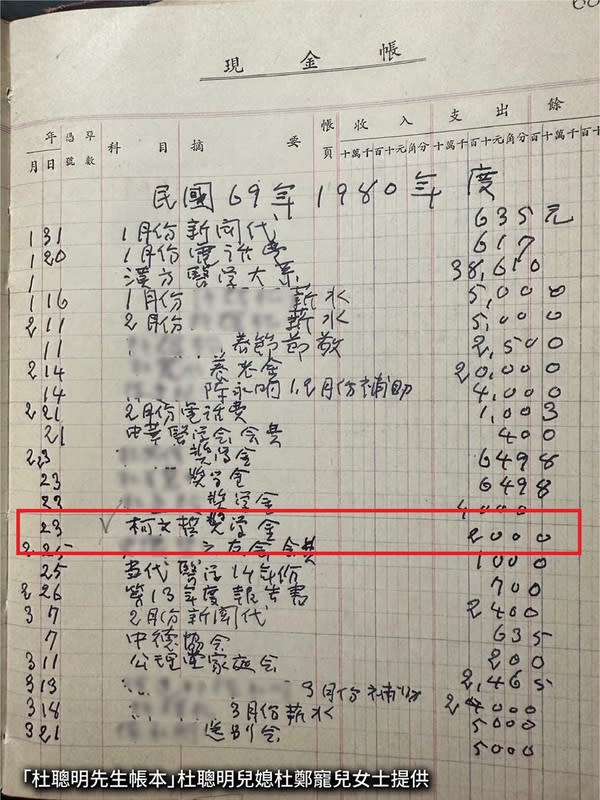 現金帳
年 月 日 憑單號數 科目 摘要 帳頁 收入 十萬千百十元角分 支出 十萬千百十元角分 餘 百十萬千百十
民國69年1980年度
1 31 1月份新聞代 635元
1 20 1月份電話費 617
1 漢方醫学大系 38,610
1 16 1月份 薪水 5,000
2 11 2月份 薪水 5,000
11 春節節敬 2,500
2 14 養老金 20,000
14 陈永 1,2月份補助 4,000
2 21 2月份電话費 1,003
21 中華醫学会会費 400
2 23 奬学金 6498
23 奬学金 6498
23 奬学金 4000
23 ✓ 柯文哲奬学金 2000
2 25 之友会会費 1000
25 当代醫学14年份 700
2 26 第13年度報告書 2400
3 7 2月份新聞代 635
7 中德協会 200
3 11 公理堂家庭会 2,465
3 13 3月份補助 2000
3 18 3月份薪水 5000
3 21 送别会 5000
「杜聰明先生帳本」杜聰明兒媳杜鄭寵兒女士提供